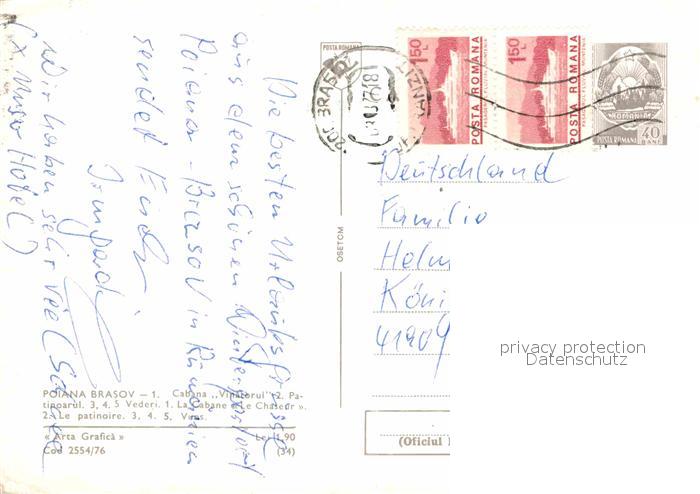 Die besten Urlaubsgrüsse
aus dem schönen Wintersportort
Poiana-Brasov in Rumänien
sendet Euch
Irmgard
Wir haben sehr viel Schnee
(x Unser Hotel)
POSTA ROMANA
1,50 L
POSTA ROMANA
1,50 L
POSTA ROMANA
ROMANIA
POSTA ROMANA
40 BANI
Deutschland
Familie
Helm
Köni
OSETOM
POIANA BRASOV — 1. Cabana „Vînătorul". 2. Pa-
tinoarul. 3, 4. 5 Vederi. 1. La Cabane « Le Chaseur ».
2. Le patinoire. 3, 4. 5. Vues.
« Arta Grafică » Lei 1,90
Cod 2554/76 (34)
(Oficiul
privacy protection
Datenschutz